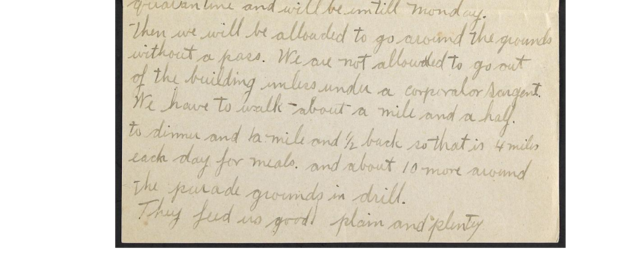 quarantine and will be intill Monday.
Then we will be alloaded to go around the grounds
without a pass. We are not allowded to go out
of the building unless under a corporal or Sargent.
We have to walk - about a mile and a half.
to dinner and 1 a mile and 1/2 back so that is 4 miles
each day for meals. and about 10 more around
the parade grounds in drill.
They feed us good plain and plenty